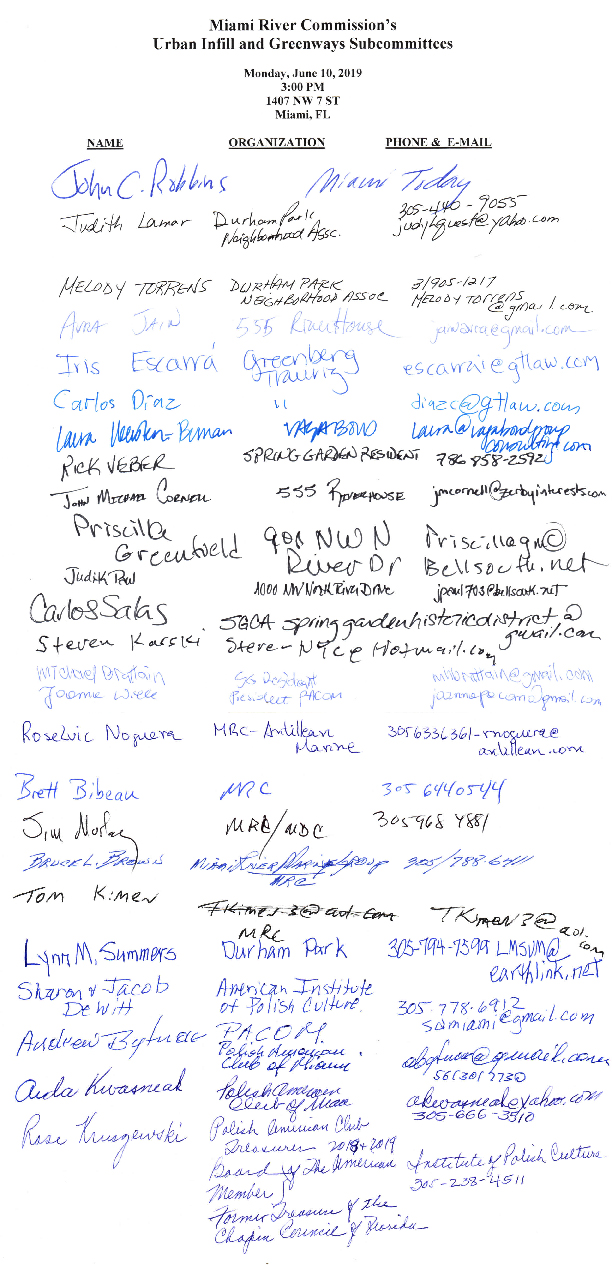 Miami River Commission's
Urban Infill and Greenways Subcommittees
Monday, June 10, 2019
3:00 PM
1407 NW 7 ST
Miami, FL
NAME ORGANIZATION PHONE & E-MAIL
John C. Robbins Miami Today
305-440-9055
Judith Lamar Durham Park judylquest@yahoo.com
Neighborhood Assc.
MELODY TORRENS DURHAM PARK 3/905-1217
NEIGHBORHOOD ASSOC MELODY TORRENS
@gmail.com
JAIN 555 RiverHouse
Iris Escarrá Greenberg escarrai@gtlaw.com
Traurig
Carlos Diaz " diazc@gtlaw.com
Laura VAGABOND Laura@vagabondgroup
consulting.com
RICK VEBER SPRING GARDEN RESIDENT 786 858-2592
JOHN MICHAEL CORNELL 555 RIVERHOUSE jmcornell@zerbyinterests.com
Priscilla 901 NW N Priscillagm@
Greenfield River Dr Bellsouth.net
Judith Paul 1000 NW North River Drive jpaul1703@bellsouth.net
Carlos Salas SGCA springgardenhistoricdistrict@
gmail.com
Steven Karski Steve-NYC@Hotmail.com
Michael Brattain mhbrattain@gmail.com
President PACOM
Roselvic Noguera MRC-Antillean 3056336361-rnoguera@
Marine antillean.com
Brett Bibeau MRC 305 6440544
Jim MRC/MDC 305 968 4881
BRUCE L. BROWN MIAMI RIVER MARINE GROUP 305/788-6411
MRC
TOM Kimen TKimen3@aol.com TKimen3@aol.com
MRC
Lynn M. Summers Durham Park 305-794-7399 LMSVM@
earthlink.net
Sharon & Jacob American Institute
DeWitt of Polish Culture 305.778.6912
sdmiami@gmail.com
Andrew PACOM
Polish American
Club of Miami 561 301 7730
Aida Kwasneak Polish American akwasneak@yahoo.com
Club of Miami 305-666-3510
Rose Kruszewski Polish American Club
Treasurer 2018+2019
Board of The American Institute of Polish Culture
Member 305-238-4511
Former Treasure of the
Chopin Council of Florida